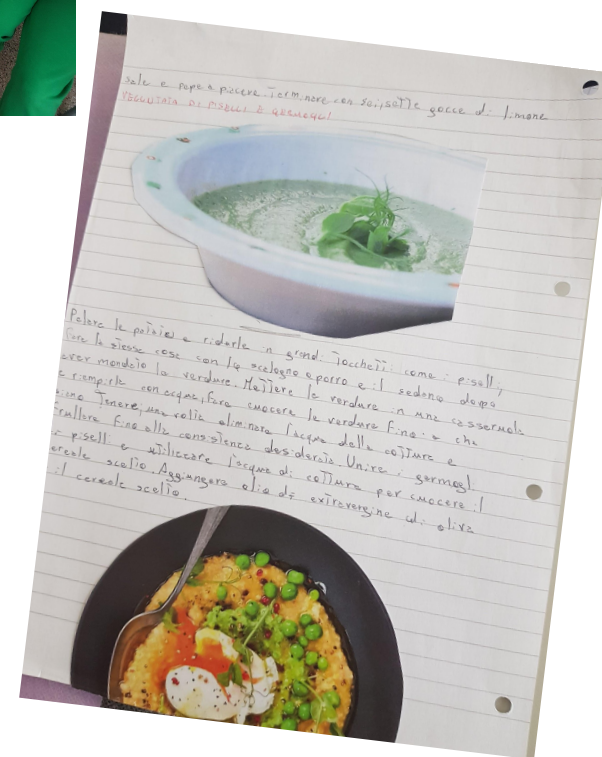 sale e pepe a piacere. Terminare con sei, sette gocce di limone
VELLUTATA DI PISELLI E GERMOGLI
Pelare le patate e ridurle in grandi tocchetti come i piselli,
fare la stessa cosa con lo scalogno e porro e il sedano dopo
aver mondato la verdure. Mettere le verdure in una casseruola
e riempirla con acqua, fare cuocere le verdure fino a che
siano tenere, una volta eliminare l'acqua della cottura e
frullare fino alla consistenza desiderata. Unire i germogli
di piselli e utilizzare l'acqua di cottura per cuocere il
cereale scelto. Aggiungere olio di extravergine di oliva
il cereale scelto.